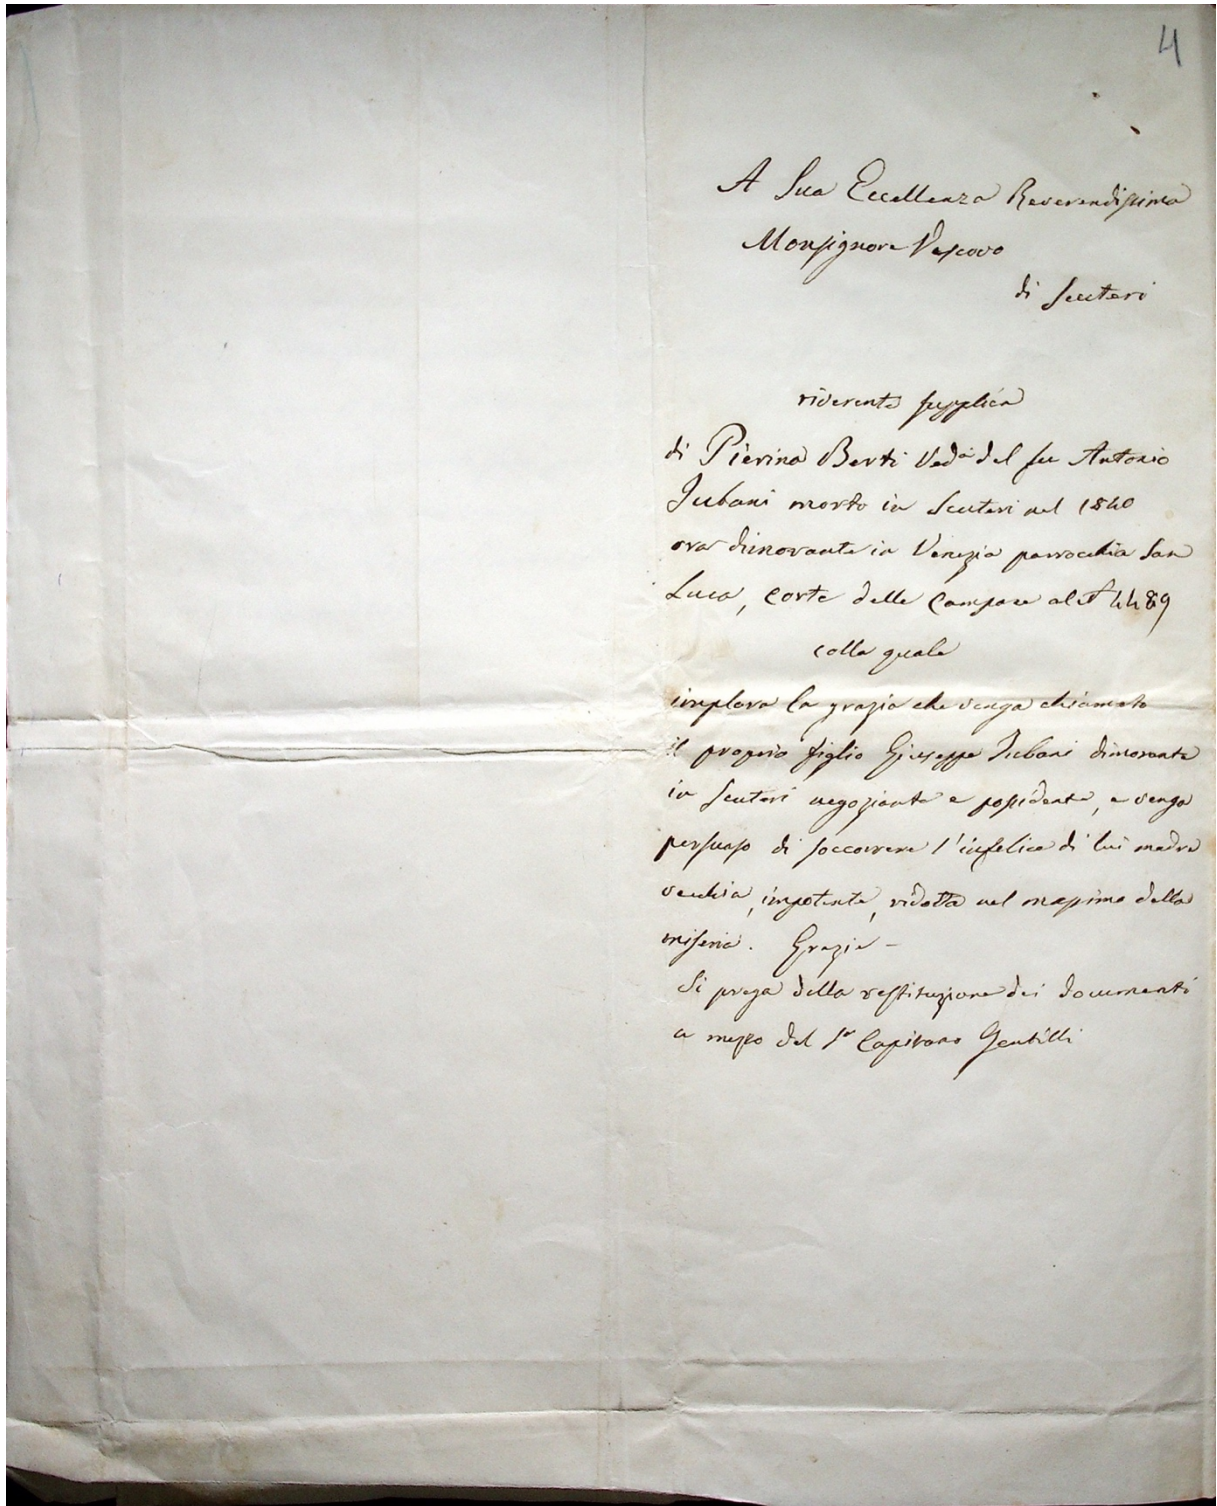 4
A Sua Eccellenza Reverendissima
Monsignore Vescovo
di Scutari
riverente supplica
di Pierina Berti Ved.a del fu Antonio
Jubani morto in Scutari nel 1840
ora dimorante in Venezia parrocchia San
Luca, Corte delle Campane al N° 4489
colla quale
implora la grazia che venga chiamato
il proprio figlio Giuseppe Jubani dimorante
in Scutari negoziante e possidente, e venga
persuaso di soccorrere l'infelice di lui madre
vecchia, impotente, ridotta nel massimo della
miseria. Grazie –
Si prega della restituzione dei documenti
a mezzo del Sr Capitano Gentilli